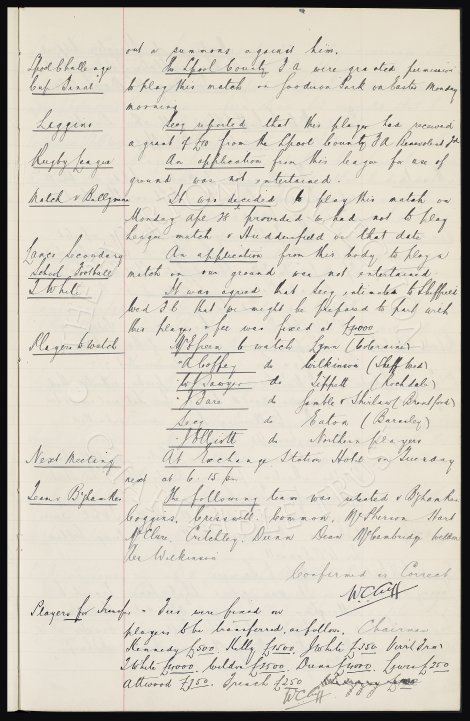 out a summons against him.
Lpool Challenge The Lpool County F A were granted permission
Cup Final to play this match on Goodison Park on Easter Monday
morning
Coggins Secy reported that this player had received
a grant of £10 from the Lpool County F A Benevolent Fd
Rugby League An application from this league for use of
ground was not entertained.
Match v Ballymena It was decided to play this match on
Monday Apl 28 provided we had not to play
League match v Huddersfield on that date
Lancs Secondary An application from this body to play a
School Football match on our ground was not entertained
T White It was agreed that Secy intimate to Sheffield
Wed F C that we might be prepared to part with
this player & fee was fixed at £4000
Players to Watch Mr Green to watch Lynn (Coleraine)
" R Coffey do Wilkinson (Sheff Wed)
" W J Sawyer do Tippett (Rochdale)
" do Gamble & Shirlaw (Brentford)
Secy do Eaton (Barnsley)
" do Northern players
Next Meeting At Exchange Station Hotel on Tuesday
next at 6.15 pm.
Team v B'ham Res The following team was selected v B'ham Res
Coggins. Cresswell. Common, McPherson Hart
McClure, Critchley, Dunn Dean McCambridge Weldon
Res Wilkinson
Confirmed as Correct
W.C. Cuff
Chairman
Players for Transfer - Fees were fixed on
players to be transferred, as follow,
Kennedy £500. Kelly £1500. J White £350
T White £4000, Weldon £2500. Dunn £4000. Lewis £250
Attwood £750. French £250
W C Cuff